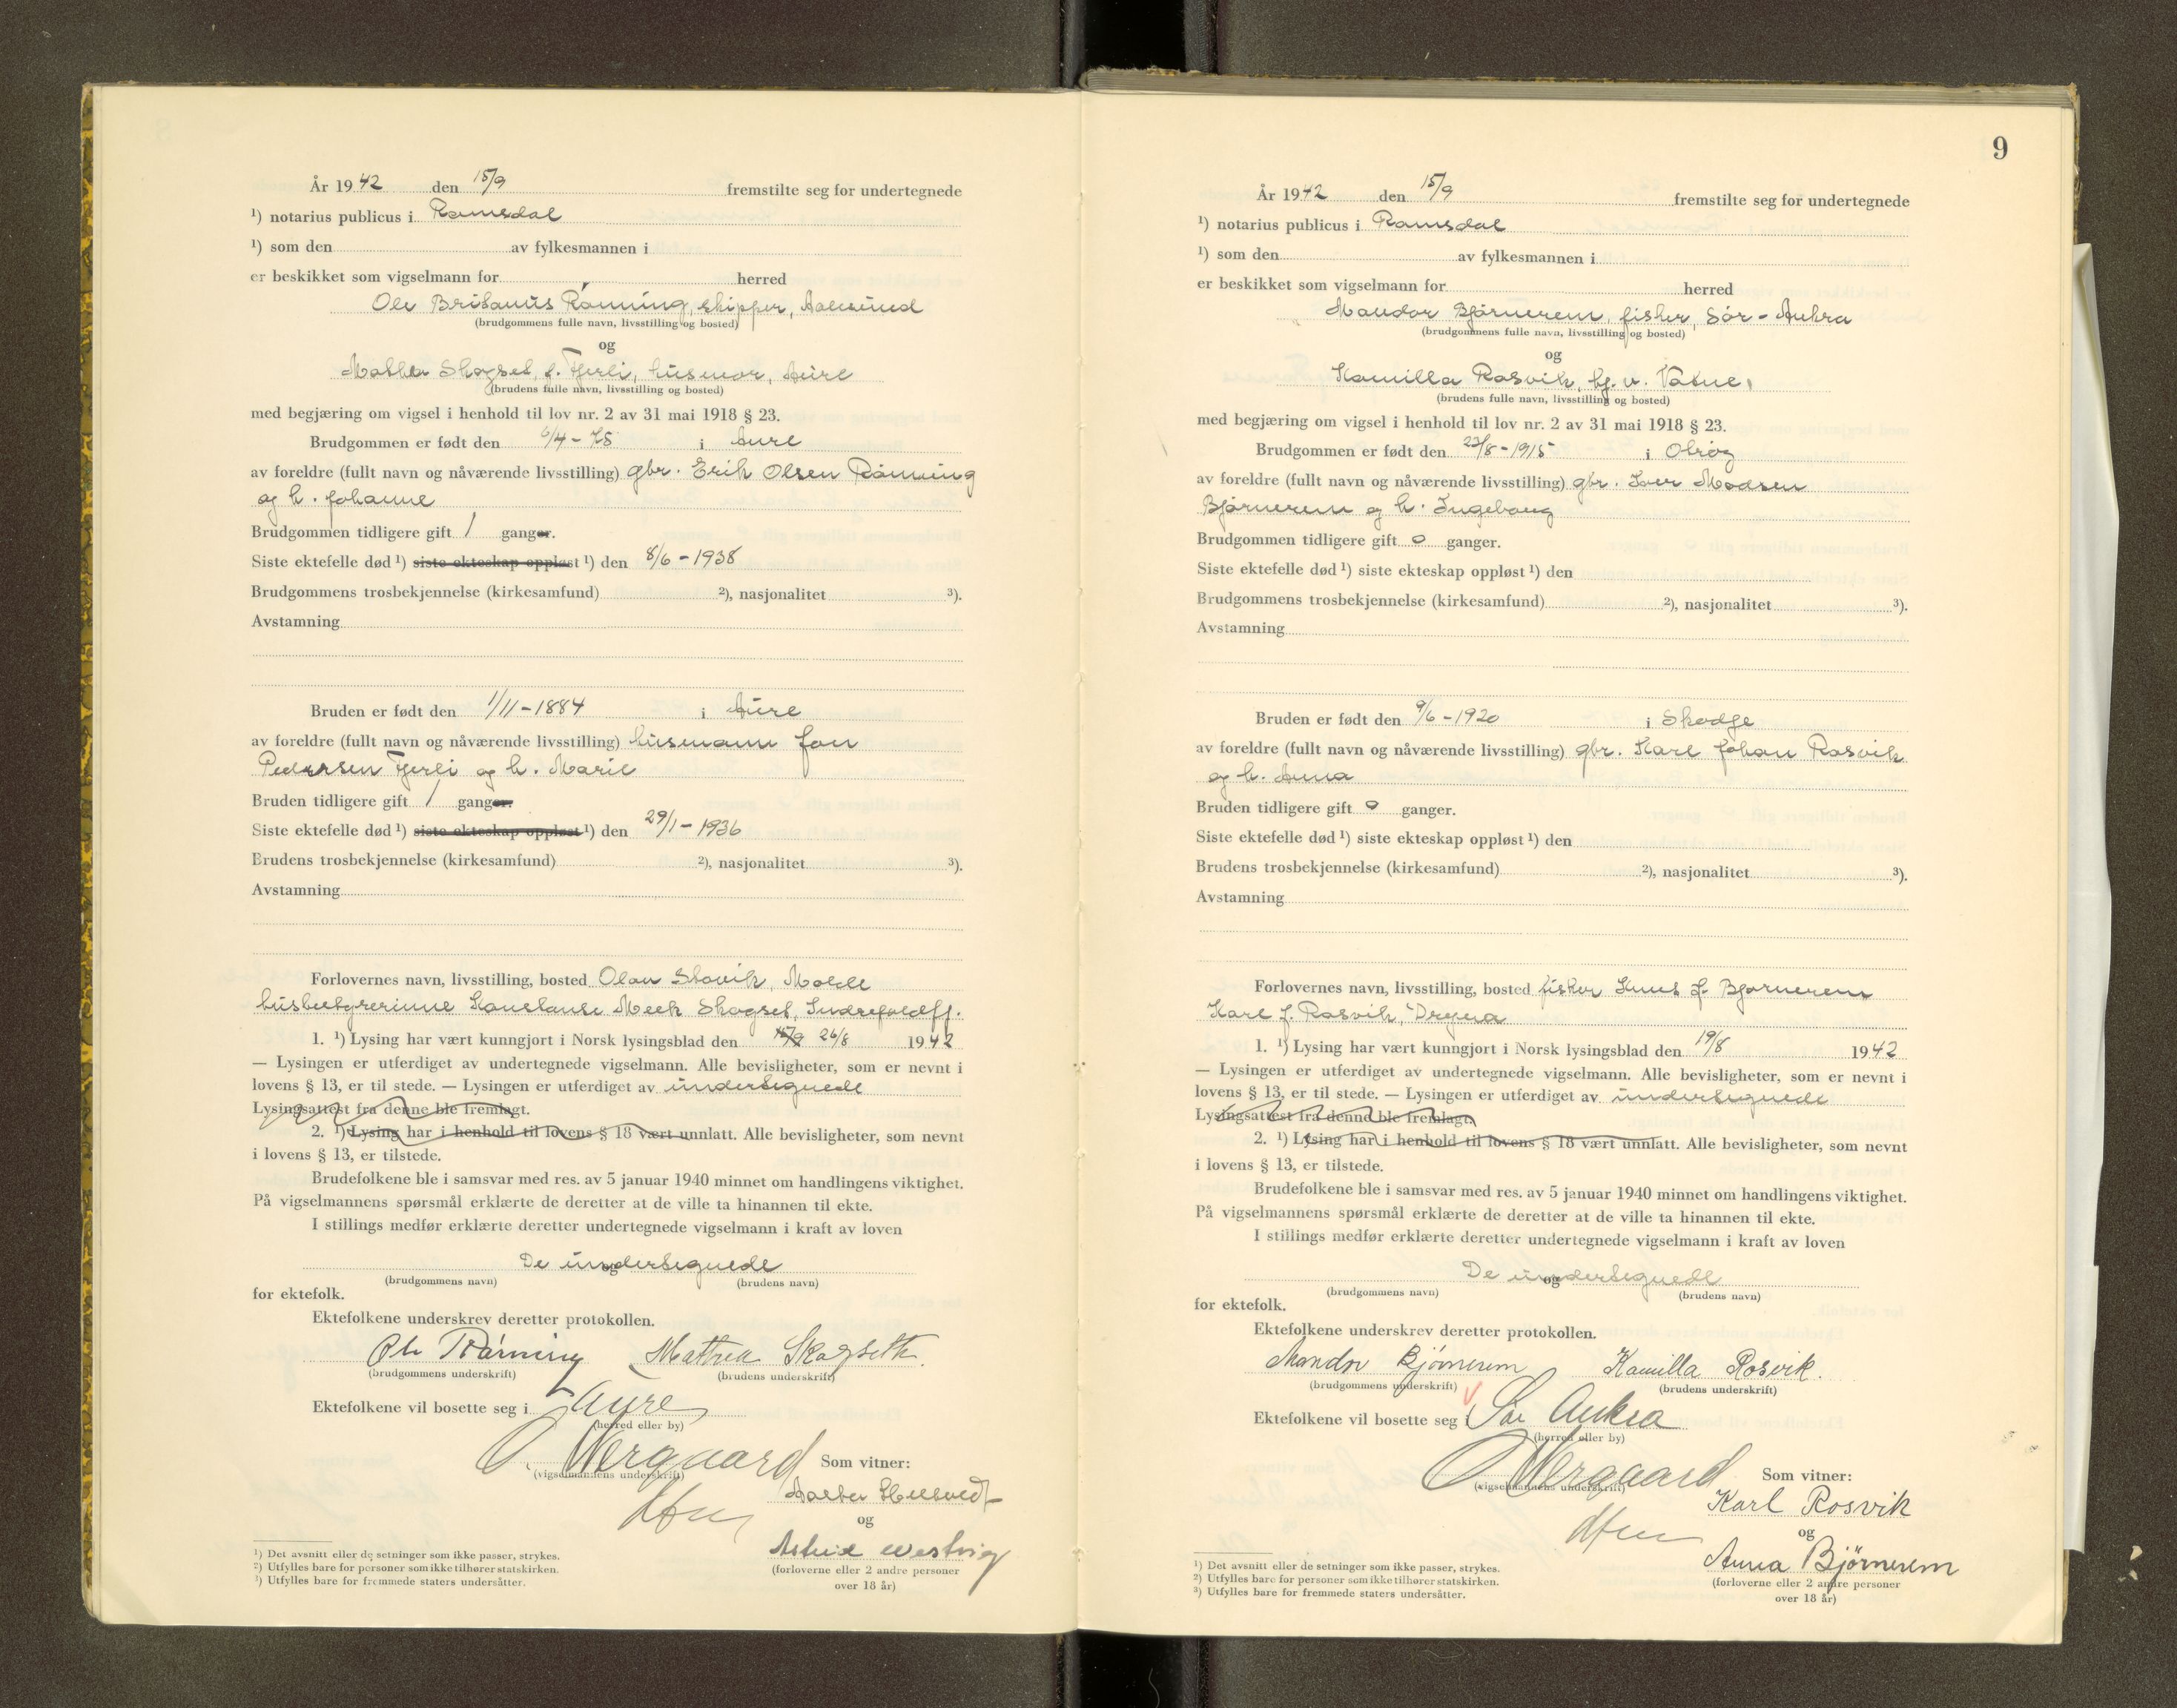 År 1942 den 15/9 fremstilte seg for undertegnede
¹) notarius publicus i Romsdal
¹) som den av fylkesmannen i
er beskikket som vigselmann for herred
Ole Britanus Rönning, skipper, Aalesund
(brudgommens fulle navn, livsstilling og bosted)
og
Mathea Skogset, f. Tjerli, husmor, Aure
(brudens fulle navn, livsstilling og bosted)
med begjæring om vigsel i henhold til lov nr. 2 av 31 mai 1918 § 23.
Brudgommen er født den 6/4 - 75 i Aure
av foreldre (fullt navn og nåværende livsstilling) gbr. Erik Olsen Rönning
og h. Johanne
Brudgommen tidligere gift 1 ganger.
Siste ektefelle død ¹) siste ekteskap oppløst ¹) den 8/6 - 1938
Brudgommens trosbekjennelse (kirkesamfund) ²), nasjonalitet ³).
Avstamning
Bruden er født den 1/11 - 1884 i Aure
av foreldre (fullt navn og nåværende livsstilling) husmann Jon
Pedersen Tjerli og h. Marie
Bruden tidligere gift 1 ganger.
Siste ektefelle død ¹) siste ekteskap oppløst ¹) den 29/1 - 1936
Brudens trosbekjennelse (kirkesamfund) ²), nasjonalitet ³).
Avstamning
Forlovernes navn, livsstilling, bosted Olav Stavik, Molde
husbestyrerinne Konstanse Meek Skogset, Indrefoldfj.
1. ¹) Lysing har vært kunngjort i Norsk lysingsblad den 26/8 1942
— Lysingen er utferdiget av undertegnede vigselmann. Alle bevisligheter, som er nevnt i
lovens § 13, er til stede. — Lysingen er utferdiget av undertegnede
Lysingsattest fra denne ble fremlagt.
2. ¹) Lysing har i henhold til lovens § 18 vært unnlatt. Alle bevisligheter, som nevnt
i lovens § 13, er tilstede.
Brudefolkene ble i samsvar med res. av 5 januar 1940 minnet om handlingens viktighet.
På vigselmannens spørsmål erklærte de deretter at de ville ta hinannen til ekte.
I stillings medfør erklærte deretter undertegnede vigselmann i kraft av loven
De undertegnede
og
(brudgommens navn) (brudens navn)
for ektefolk.
Ektefolkene underskrev deretter protokollen.
Ole Rönning Mathea Skogseth.
(brudgommens underskrift) (brudens underskrift)
Ektefolkene vil bosette seg i Aure
(herred eller by)
O. Wergaard
(vigselmannens underskrift) Som vitner:
og
Astrid Westvig
(forloverne eller 2 andre personer
over 18 år)
¹) Det avsnitt eller de setninger som ikke passer, strykes.
²) Utfylles bare for personer som ikke tilhører statskirken.
³) Utfylles bare for fremmede staters undersåtter.
9
År 1942 den 15/9 fremstilte seg for undertegnede
¹) notarius publicus i Romsdal
¹) som den av fylkesmannen i
er beskikket som vigselmann for herred
Mandor Bjørnerem, fisker, Sör-Aukra
(brudgommens fulle navn, livsstilling og bosted)
og
Kamilla Rosvik, hj. v. Vatne,
(brudens fulle navn, livsstilling og bosted)
med begjæring om vigsel i henhold til lov nr. 2 av 31 mai 1918 § 23.
Brudgommen er født den 23/8 - 1915 i
av foreldre (fullt navn og nåværende livsstilling) gbr. Iver Madsen
Bjørnerem og h. Ingeborg
Brudgommen tidligere gift 0 ganger.
Siste ektefelle død ¹) siste ekteskap oppløst ¹) den
Brudgommens trosbekjennelse (kirkesamfund) ²), nasjonalitet ³).
Avstamning
Bruden er født den 9/6 - 1920 i Skodje
av foreldre (fullt navn og nåværende livsstilling) gbr. Karl Johan Rosvik
og h. Anna
Bruden tidligere gift 0 ganger.
Siste ektefelle død ¹) siste ekteskap oppløst ¹) den
Brudens trosbekjennelse (kirkesamfund) ²), nasjonalitet ³).
Avstamning
Forlovernes navn, livsstilling, bosted fisker J. Bjørnerem
Karl J. Rosvik, Dryna
1. ¹) Lysing har vært kunngjort i Norsk lysingsblad den 19/8 1942
— Lysingen er utferdiget av undertegnede vigselmann. Alle bevisligheter, som er nevnt i
lovens § 13, er til stede. — Lysingen er utferdiget av undertegnede
Lysingsattest fra denne ble fremlagt.
2. ¹) Lysing har i henhold til lovens § 18 vært unnlatt. Alle bevisligheter, som nevnt
i lovens § 13, er tilstede.
Brudefolkene ble i samsvar med res. av 5 januar 1940 minnet om handlingens viktighet.
På vigselmannens spørsmål erklærte de deretter at de ville ta hinannen til ekte.
I stillings medfør erklærte deretter undertegnede vigselmann i kraft av loven
De undertegnede
og
(brudgommens navn) (brudens navn)
for ektefolk.
Ektefolkene underskrev deretter protokollen.
Mandor Bjørnerem Kamilla Rosvik.
(brudgommens underskrift) (brudens underskrift)
Ektefolkene vil bosette seg i Sør Aukra
(herred eller by)
O. Wergaard
(vigselmannens underskrift) Som vitner:
Karl Rosvik
og
Anna Bjørnerem
(forloverne eller 2 andre personer
over 18 år)
¹) Det avsnitt eller de setninger som ikke passer, strykes.
²) Utfylles bare for personer som ikke tilhører statskirken.
³) Utfylles bare for fremmede staters undersåtter.